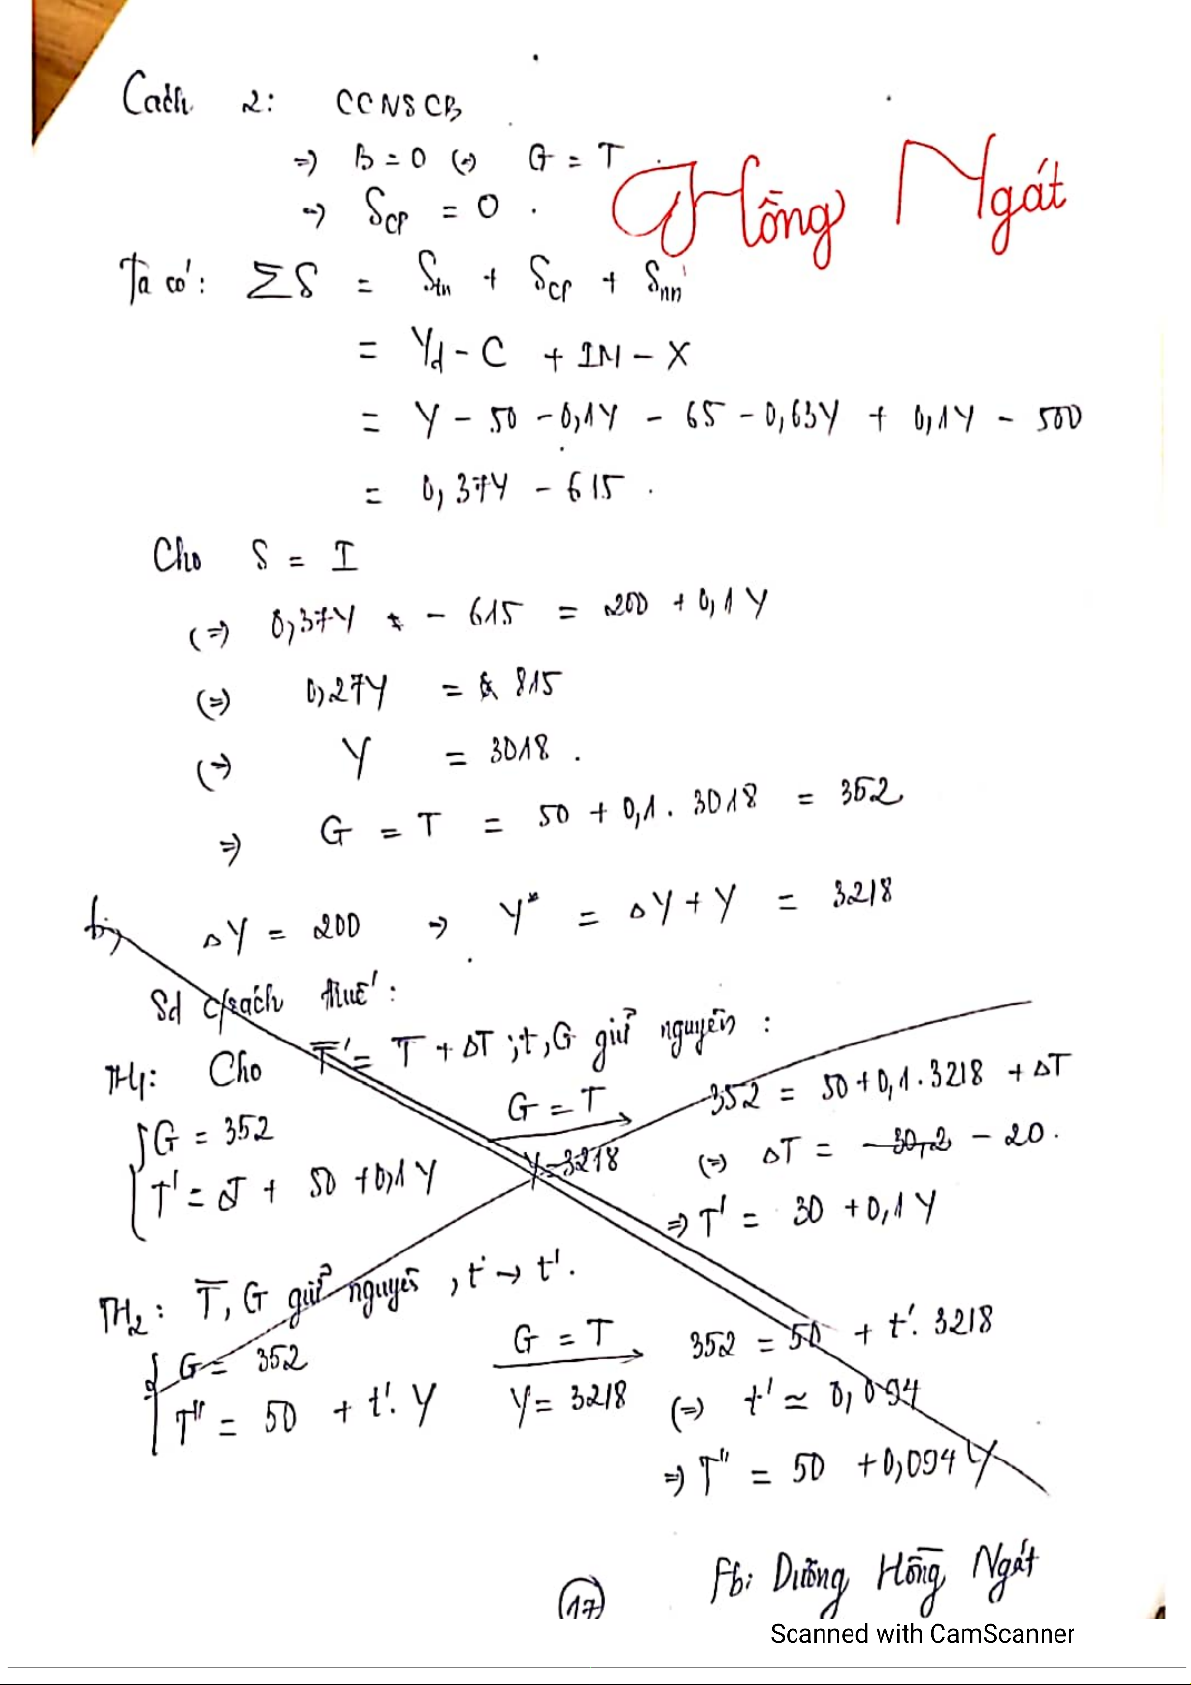 Cách 2: CCNSCB
=> B = 0 (=) G = T
=> Scp = 0 .
Hồng Ngát
Ta có: ΣS = Stn + Scp + Snn
= Yd - C + IM - X
= Y - 50 - 0,1Y - 65 - 0,63Y + 0,1Y - 500
= 0,37Y - 615 .
Cho S = I
(=) 0,37Y - 615 = 200 + 0,1Y
(=) 0,27Y = 815
(=) Y = 3018 .
=> G = T = 50 + 0,1 . 3018 = 352
b, ΔY = 200 => Y* = ΔY + Y = 3218
Sd c/sách thuế:
TH1: Cho T̅' = T̅ + ΔT ; t, G giữ nguyên :
{ G = 352
T' = ΔT + 50 + 0,1Y
G = T
Y = 3218
352 = 50 + 0,1 . 3218 + ΔT
(=) ΔT = -30,2 - 20.
=> T' = 30 + 0,1Y
TH2: T̅, G giữ nguyên , t -> t'.
{ G = 352
T" = 50 + t'. Y
G = T
Y = 3218
352 = 50 + t'. 3218
(=) t' ≃ 0,094
=> T" = 50 + 0,094Y
Fb: Dương Hồng Ngát
17
Scanned with CamScanner